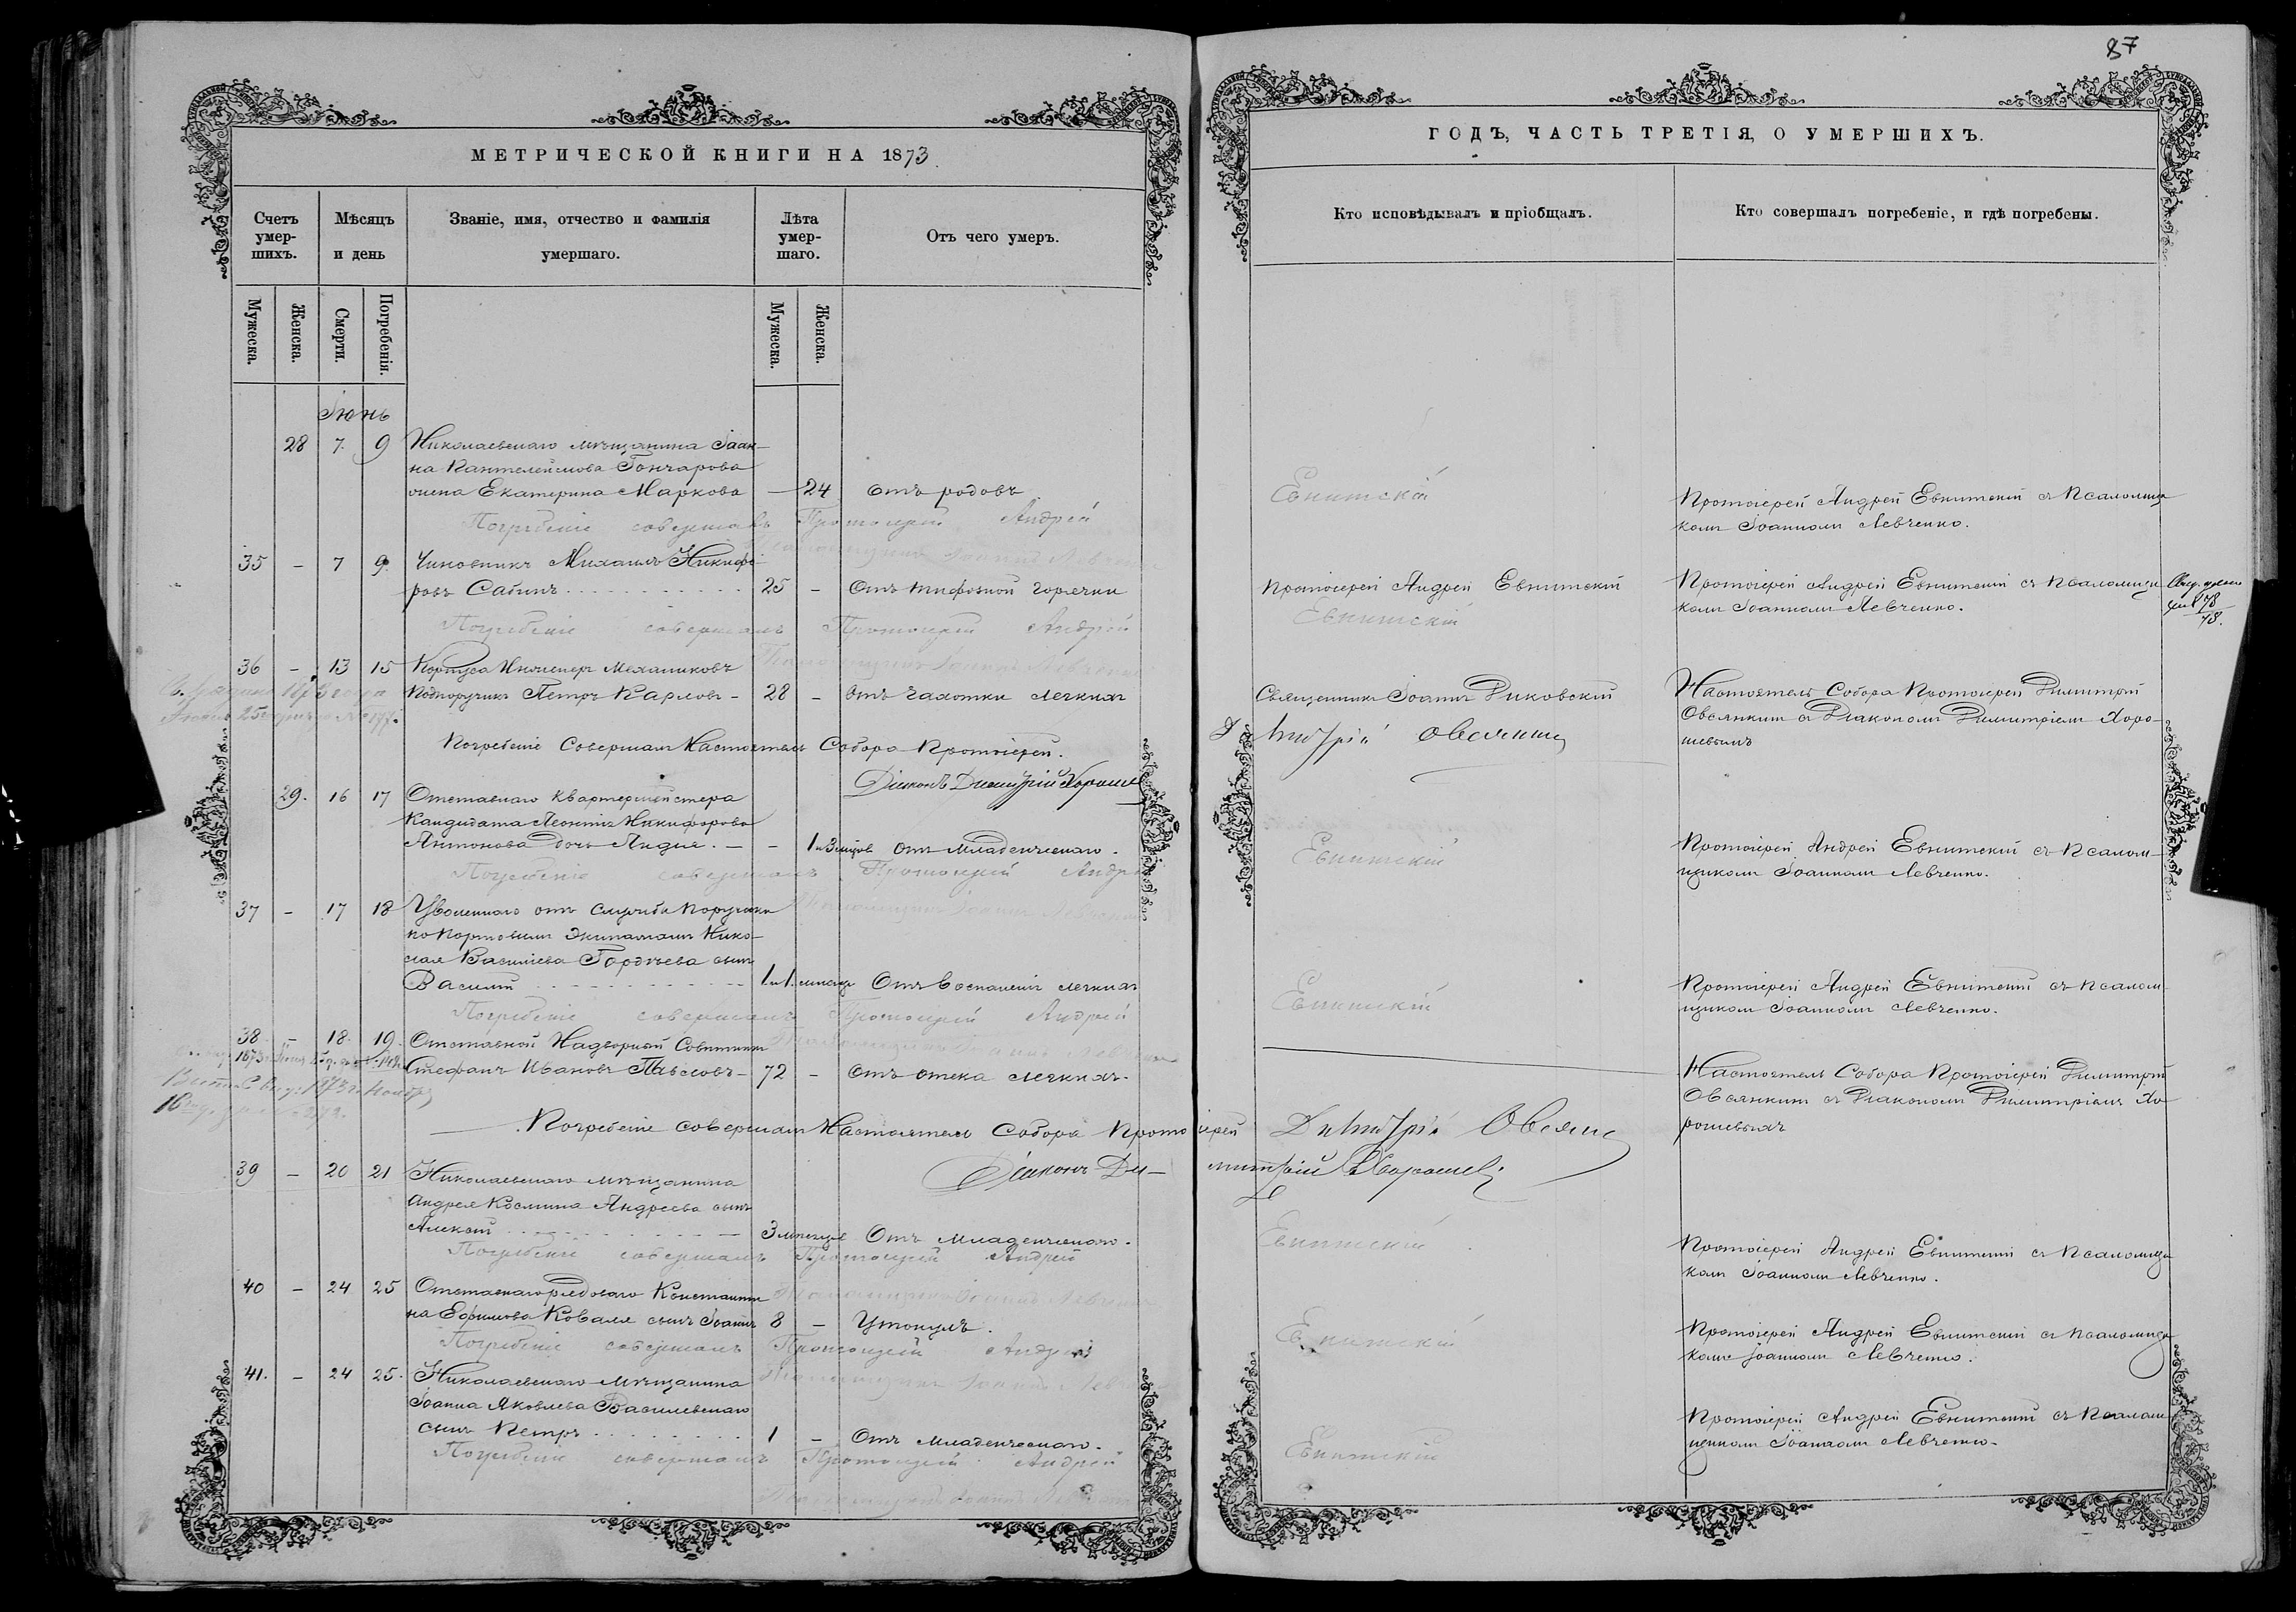 МЕТРИЧЕСКОЙ КНИГИ НА 1873.
Счетъ умер-шихъ.
Мѣсяцъ и день
Званіе, имя, отчество и фамилія умершаго.
Лѣта умер-шаго.
Отъ чего умеръ.
Мужеска.
Женска.
Смерти.
Погребенія.
Мужеска.
Женска.
Іюнь
28 7. 9 Николаевскаго мѣщанина Іоан-
на Пантелеимова Гончарова
жена Екатерина Маркова — 24 отъ родовъ
Погребеніе совершалъ Протоіерей Андрей
Псаломщикъ Іоаннъ Левченко
35 – 7 9. Чиновникъ Михаилъ Никифо-
ровъ Сабинъ 25 – Отъ тифозной горячки
Погребеніе совершалъ Протоіерей Андрей
Псаломщикъ Іоаннъ Левченко
36 – 13 15 Корпуса Инженеръ Механиковъ
Подпоручикъ Петръ Карловъ – 28 – Отъ чахотки легкихъ
Погребеніе Совершалъ Настоятель Собора Протоіерей.
Діаконъ Димитрій Хороше
29. 16 17 Отставнаго Квартермистера
Кандидата Леонтія Никифорова
Антонова дочь Лидія. – – 1 и 3 мѣсяц. Отъ Младенческаго.
Погребеніе совершалъ Протоіерей Андрей
37 – 17 18 Уволеннаго отъ службы Поручика
по Портовымъ Экипажамъ Нико-
лая Василіева Гордѣева сынъ
Василій 1 и 1. мѣсяцъ Отъ Воспаленія легкихъ
Погребеніе совершалъ Протоіерей Андрей
38 – 18. 19. Отставной Надворный Совѣтникъ
Стефанъ Ивановъ Павловъ – 72 – Отъ отека легкихъ.
Погребеніе совершалъ Настоятель Собора Прото
Діаконъ Ди–
39 – 20 21 Николаевскаго мѣщанина
Андрея Космина Андреева сынъ
Алексѣй 3 мѣсяцевъ Отъ Младенческаго.
Погребеніе совершалъ Протоіерей Андрей
40 – 24 25 Отставнаго рядоваго Константи
на Ефимова Коваля сынъ Іоаннъ 8 – Утонулъ.
Погребеніе совершалъ Протоіерей Андрей
41. – 24 25. Николаевскаго Мѣщанина
Іоанна Яковлева Василевскаго
сынъ Петръ 1 – Отъ Младенческаго.
Погребеніе совершалъ Протоіерей Андрей
87
ГОДЪ, ЧАСТЬ ТРЕТІЯ, О УМЕРШИХЪ.
Кто исповѣдывалъ и пріобщалъ.
Кто совершалъ погребеніе, и гдѣ погребены.
Евнитскій
Протоіерей Андрей Евнитскій съ Псаломщи
комъ Іоанномъ Левченко.
Протоіерей Андрей Евнитскій
Евнитскій
Протоіерей Андрей Евнитскій съ Псаломщи
комъ Іоанномъ Левченко.
Священникъ Іоаннъ Диковскій
Димитрій Овсянкинъ
Настоятель Собора Протоіерей Димитрій
Овсянкинъ съ Діакономъ Димитріемъ Хоро-
шевымъ
Евнитскій
Протоіерей Андрей Евнитскій съ Псалом-
щикомъ Іоанномъ Левченко.
Евнитскій
Протоіерей Андрей Евнитскій съ Псалом-
щикомъ Іоанномъ Левченко.
Настоятель Собора Протоіерей Димитрій
Овсянкинъ съ Діакономъ Димитріемъ Хо
рошевымъ
іерей Димитрій Овсянк
митрій Хорошев
Евнитскій
Протоіерей Андрей Евнитскій съ Псаломщи
комъ Іоанномъ Левченко.
Евнитскій
Протоіерей Андрей Евнитскій съ Псаломщи
комъ Іоанномъ Левченко.
Евнитскій
Протоіерей Андрей Евнитскій съ Псалом
щикомъ Іоанномъ Левченко.